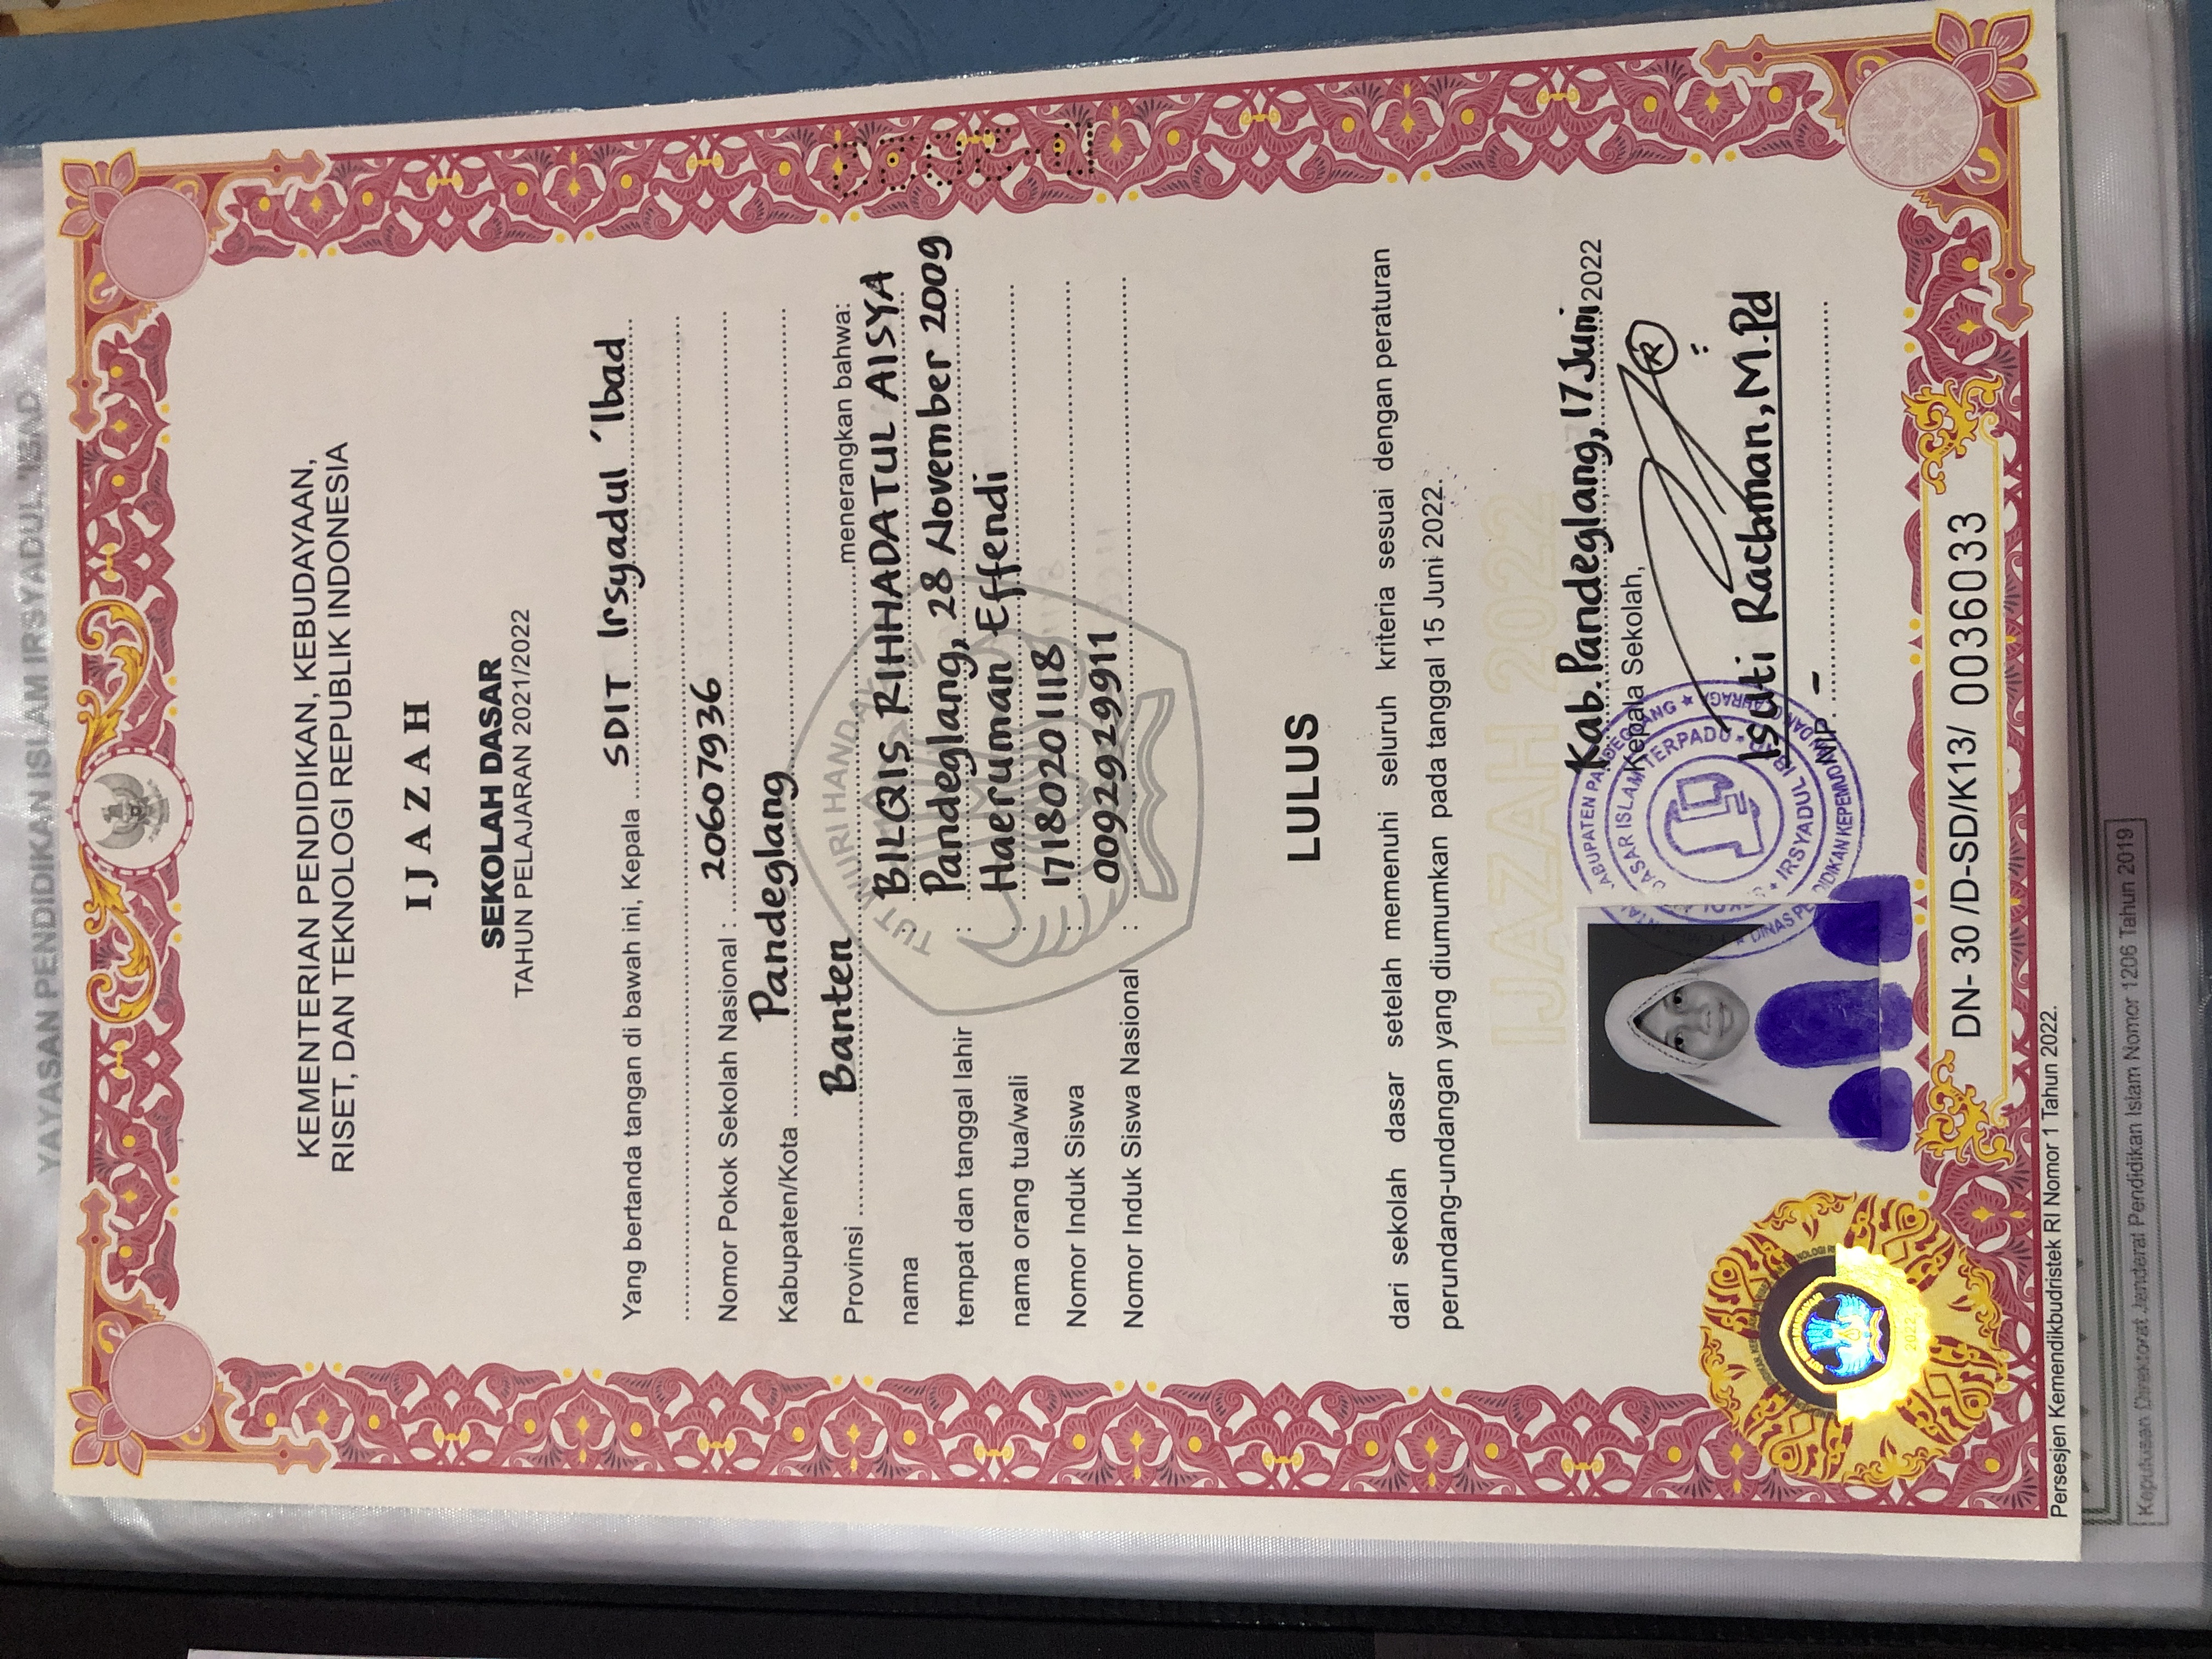 YAYASAN PENDIDIKAN ISLAM IRSYADUL 'IBAD
KEMENTERIAN PENDIDIKAN, KEBUDAYAAN,
RISET, DAN TEKNOLOGI REPUBLIK INDONESIA
IJAZAH
SEKOLAH DASAR
TAHUN PELAJARAN 2021/2022
Yang bertanda tangan di bawah ini, Kepala SDIT Irsyadul 'Ibad
Nomor Pokok Sekolah Nasional : 20607936
Kabupaten/Kota Pandeglang
Provinsi Banten menerangkan bahwa:
nama : BILQIS RIHHADATUL AISYA
tempat dan tanggal lahir : Pandeglang, 28 November 2009
nama orang tua/wali : Haeruman Effendi
Nomor Induk Siswa : 17180201118
Nomor Induk Siswa Nasional : 0092929911
TUT WURI HANDAYANI
LULUS
dari sekolah dasar setelah memenuhi seluruh kriteria sesuai dengan peraturan
perundang-undangan yang diumumkan pada tanggal 15 Juni 2022.
IJAZAH 2022
Kab. Pandeglang, 17 Juni 2022
Kepala Sekolah,
Isuti Rachman, M.Pd
NIP. -
KABUPATEN PANDEGLANG
DASAR ISLAM TERPADU
IRSYADUL IBAD
TUT WURI HANDAYANI
2022
DN- 30 /D-SD/K13/ 0036033
Persesjen Kemendikbudristek RI Nomor 1 Tahun 2022.
Keputusan Direktorat Jenderal Pendidikan Islam Nomor 1206 Tahun 2019